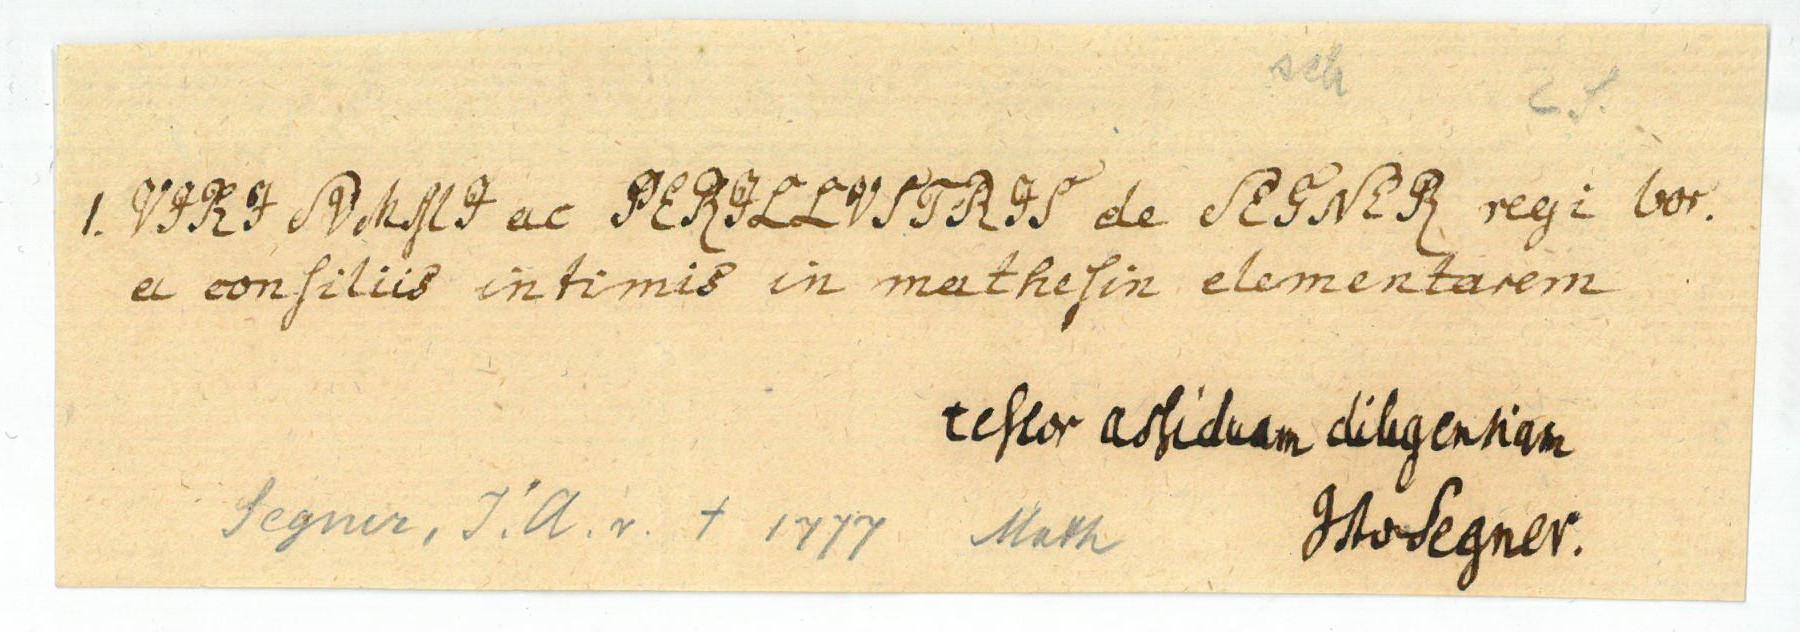 sch
1. VIRI SVMMI ac PERILLVSTRIS de SEGNER regi bor.
a consiliis intimis in mathesin elementarem
testor assiduam diligentiam
Segner, J. A. v. † 1777 Math
JAv Segner.